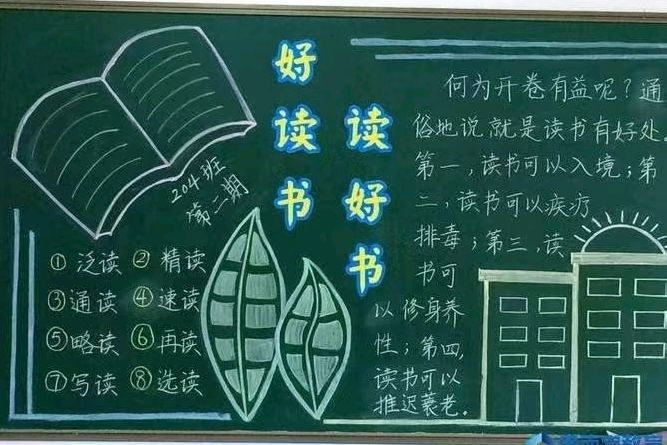 好读书
读好书
204班
第二期
① 泛读 ② 精读
③ 通读 ④ 速读
⑤ 略读 ⑥ 再读
⑦ 写读 ⑧ 选读
何为开卷有益呢？通
俗地说就是读书有好处
第一，读书可以入境；第
二，读书可以疾疗
排毒；第三，读
书可
以修身养
性；第四，
读书可以
推迟蓑老。